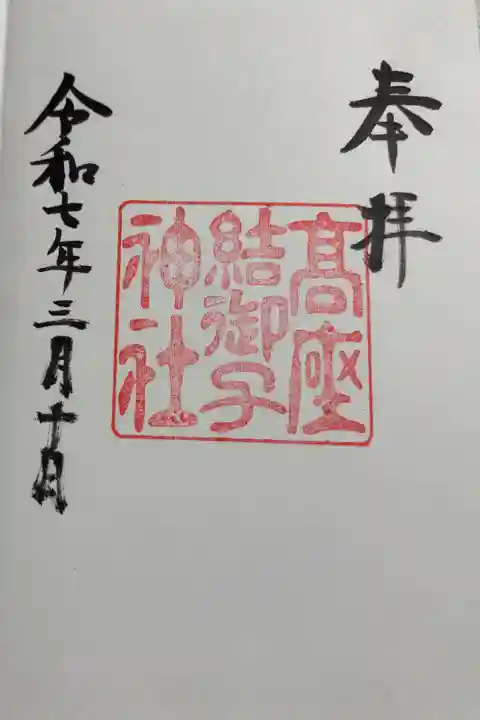 奉拝
髙座
結御子
神社
令和七年三月十日